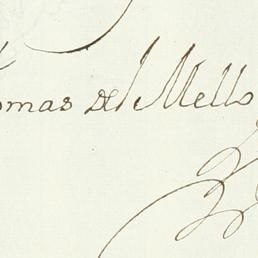 omas de Mello